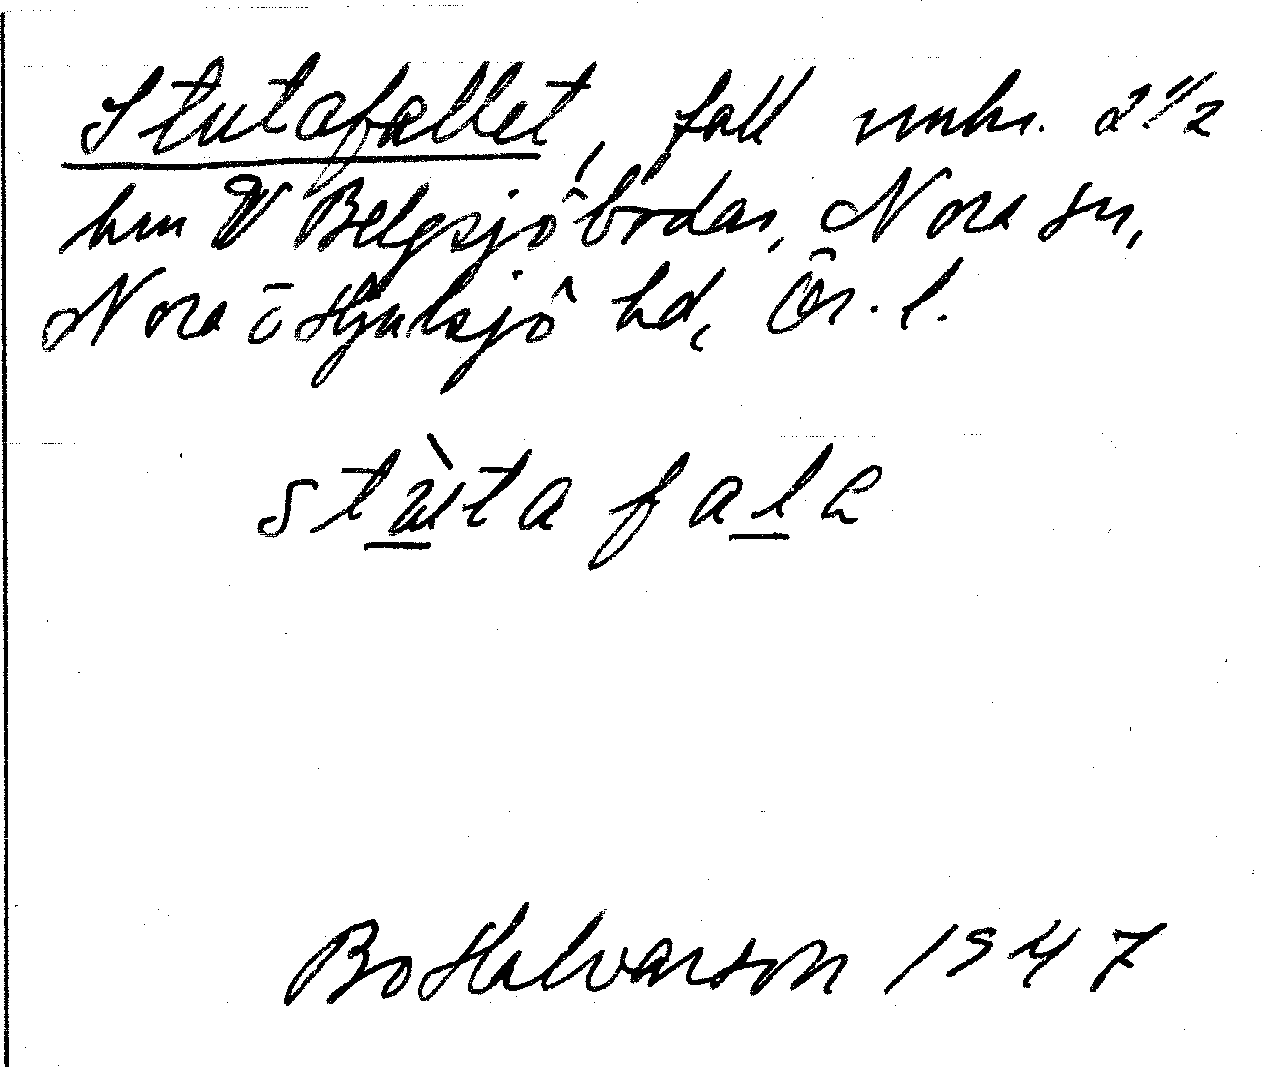 Stutafallet, fall unkr. 2 1/2
km V Belgsjöbodar, Nora sn,
Nora o Hjulsjö hd, Ör. l.
stùta fale
Bo Halvarson 1947